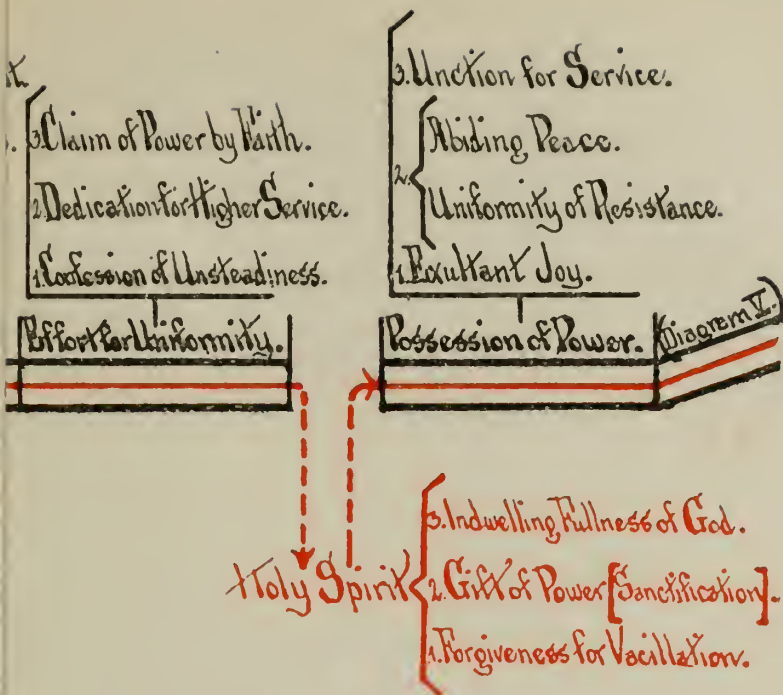 3. Claim of Power by Faith.
2. Dedication for Higher Service.
1. Confession of Unsteadiness.
Effort for Uniformity.
3. Unction for Service.
2. Abiding Peace.
Uniformity of Resistance.
1. Exultant Joy.
Possession of Power.
(Diagram V.)
Holy Spirit
3. Indwelling Fullness of God.
2. Gift of Power [Sanctification].
1. Forgiveness for Vacillation.